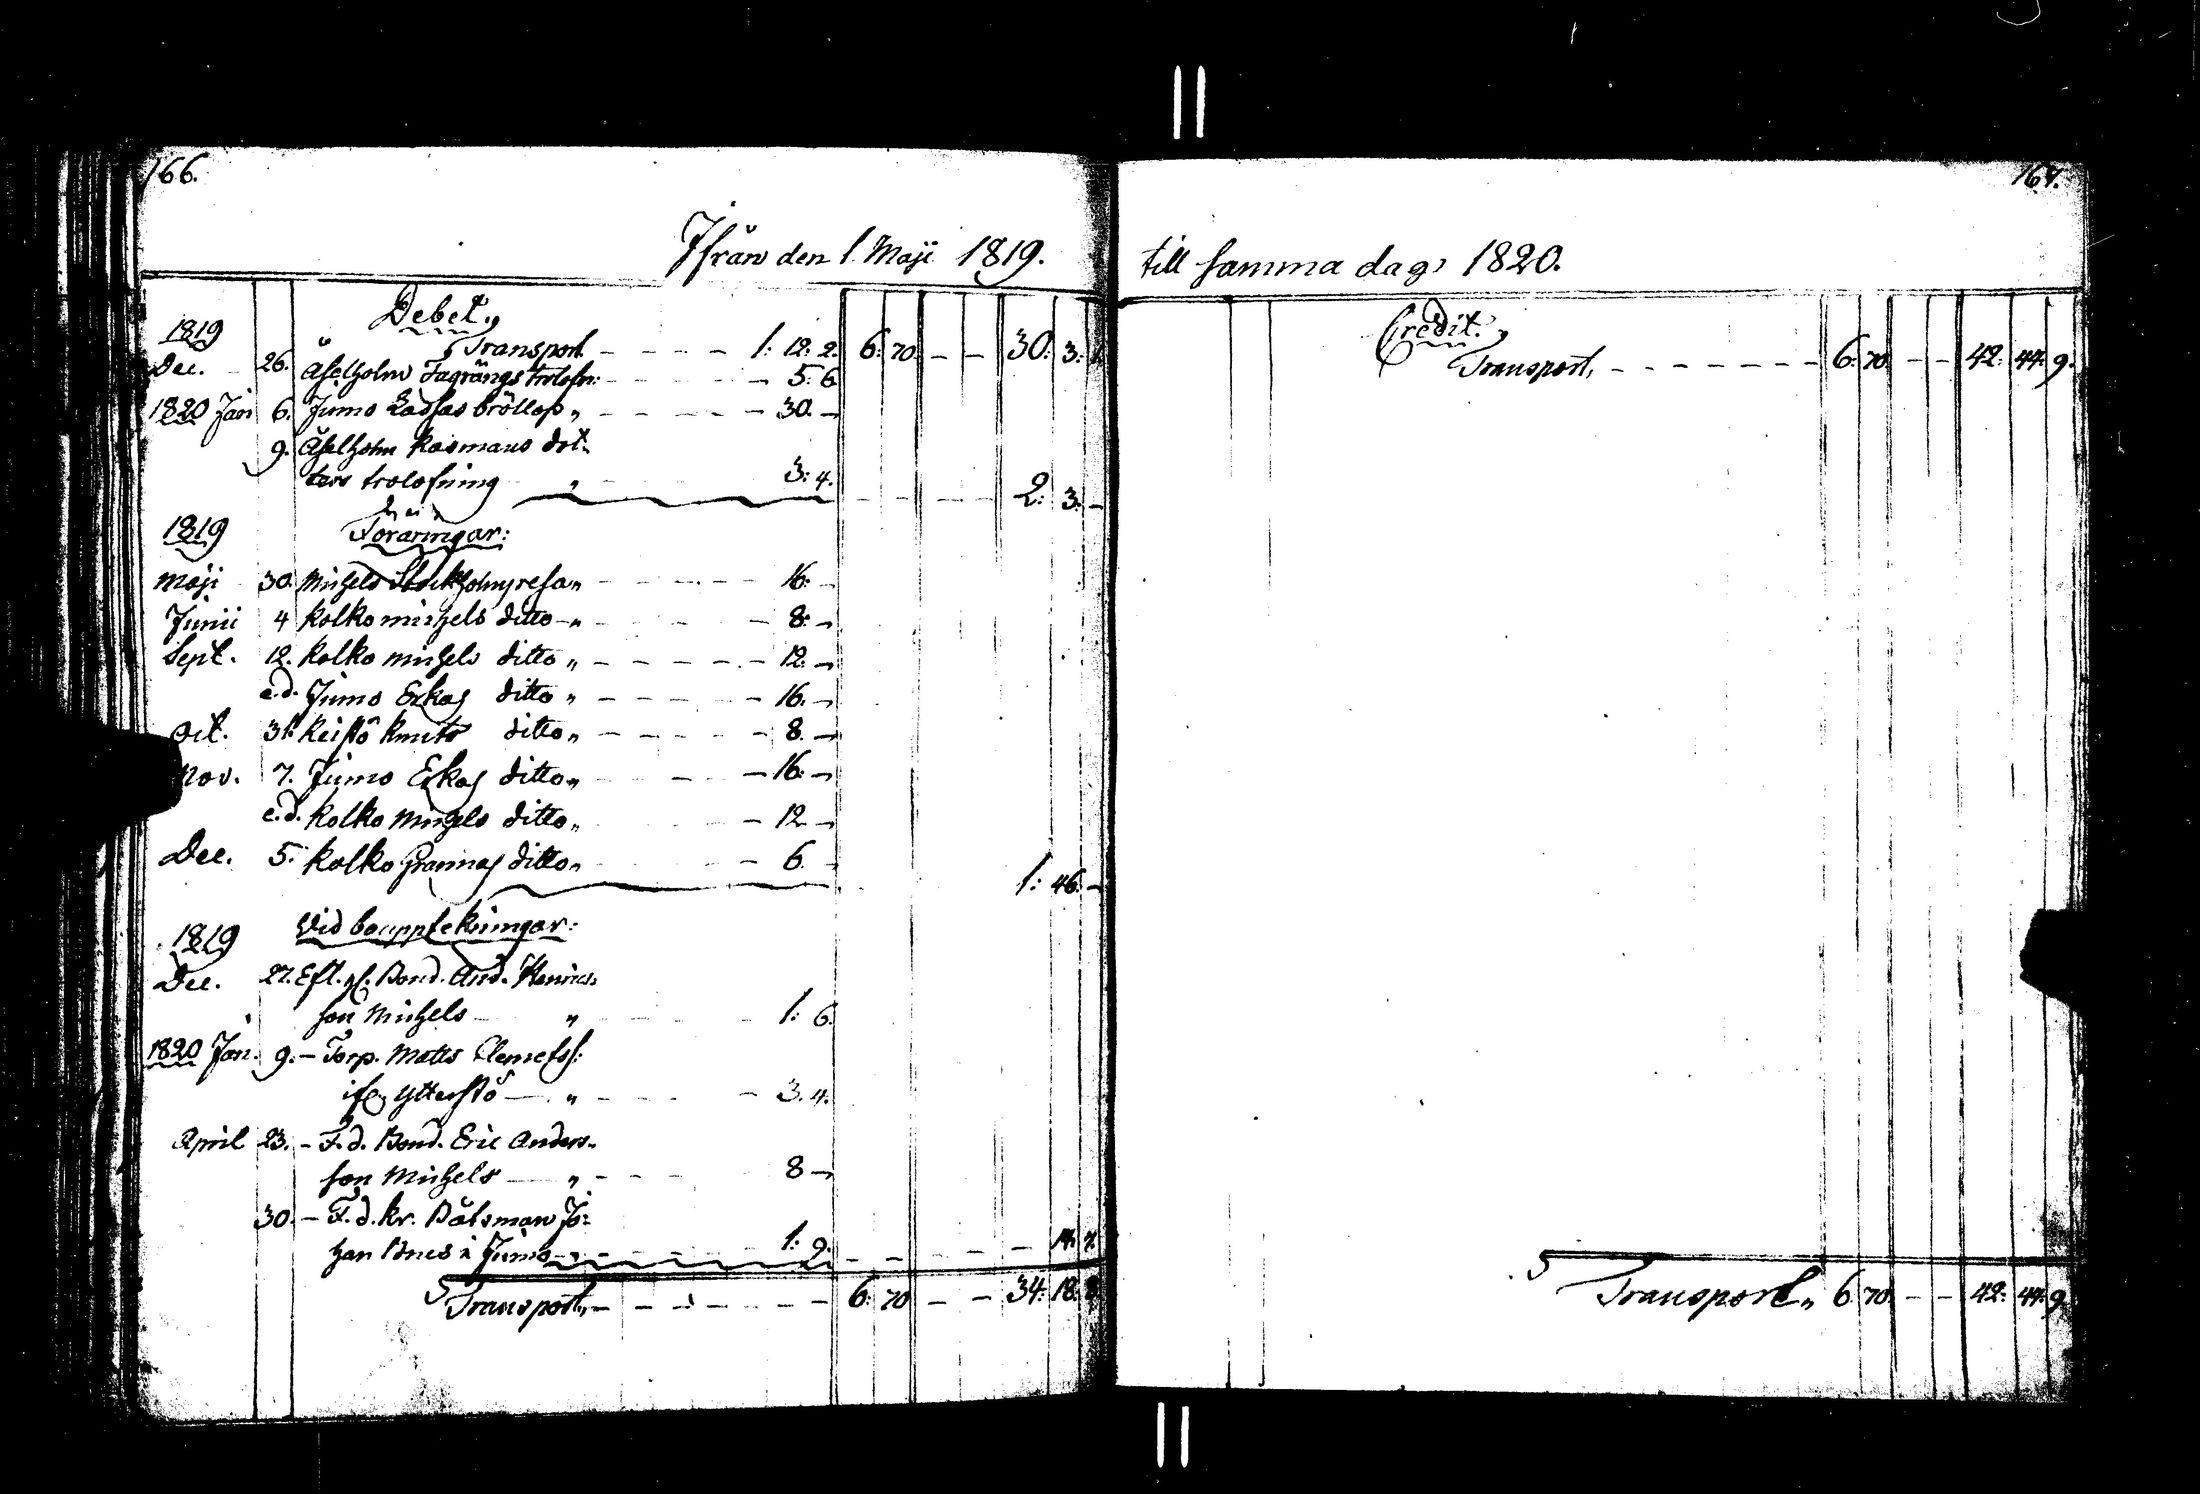 166.
Ifrån den 1. Maji 1819.
Debet.
1819 Transport 1: 12: 2. 6: 70 - - 30: 3: 1.
Dec. 26. Äfelholm Fagrängs trolofn: 5: 6
1820 Jan 6. Jumo Lassas bröllop „ 30. -
9. Äfelholm Rosmans dot-
ters trolofning „ 3: 4. - - 2: 3. -
1819 Föräringar:
Maji 30. Mishels Stockholmsresa „ 16: -
Junii 4 Kolko mishels ditto „ 8: -
Sept. 12. Kolko mishels ditto „ 12. -
e.d. Jumo Erkas ditto „ 16. -
Oct. 31. Keistö Knuts ditto „ 8. -
Nov. 7. Jumo Erkas ditto „ 16: -
e.d. Kolko Mishels ditto „ 12 -
Dec. 5. Kolko Grannas ditto „ 6. -
1: 46. -
1819 Vid bouppteckningar:
Dec. 27. Eft. Bond. And. Henrics-
son Mishels „ 1: 6.
1820 Jan. 9. - Torp. Matts Clemetss:
ifr. Ytterstö „ 3. 4.
April 23. - F. d. Bond. Eric Anders-
son Mishels „ 8 -
30. - F. d. kr. Båtsman Jo-
han Bnes i Jumo „ 1: 9. - - - 14: 7.
Transport „ 6: 70 - - 34: 18: 8
167.
till samma dag 1820.
Credit.
Transport, 6: 70 - - 42: 44: 9.
Transport „ 6: 70. - - 42: 44: 9